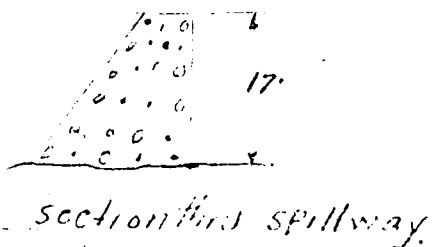 17'
section thru spillway.